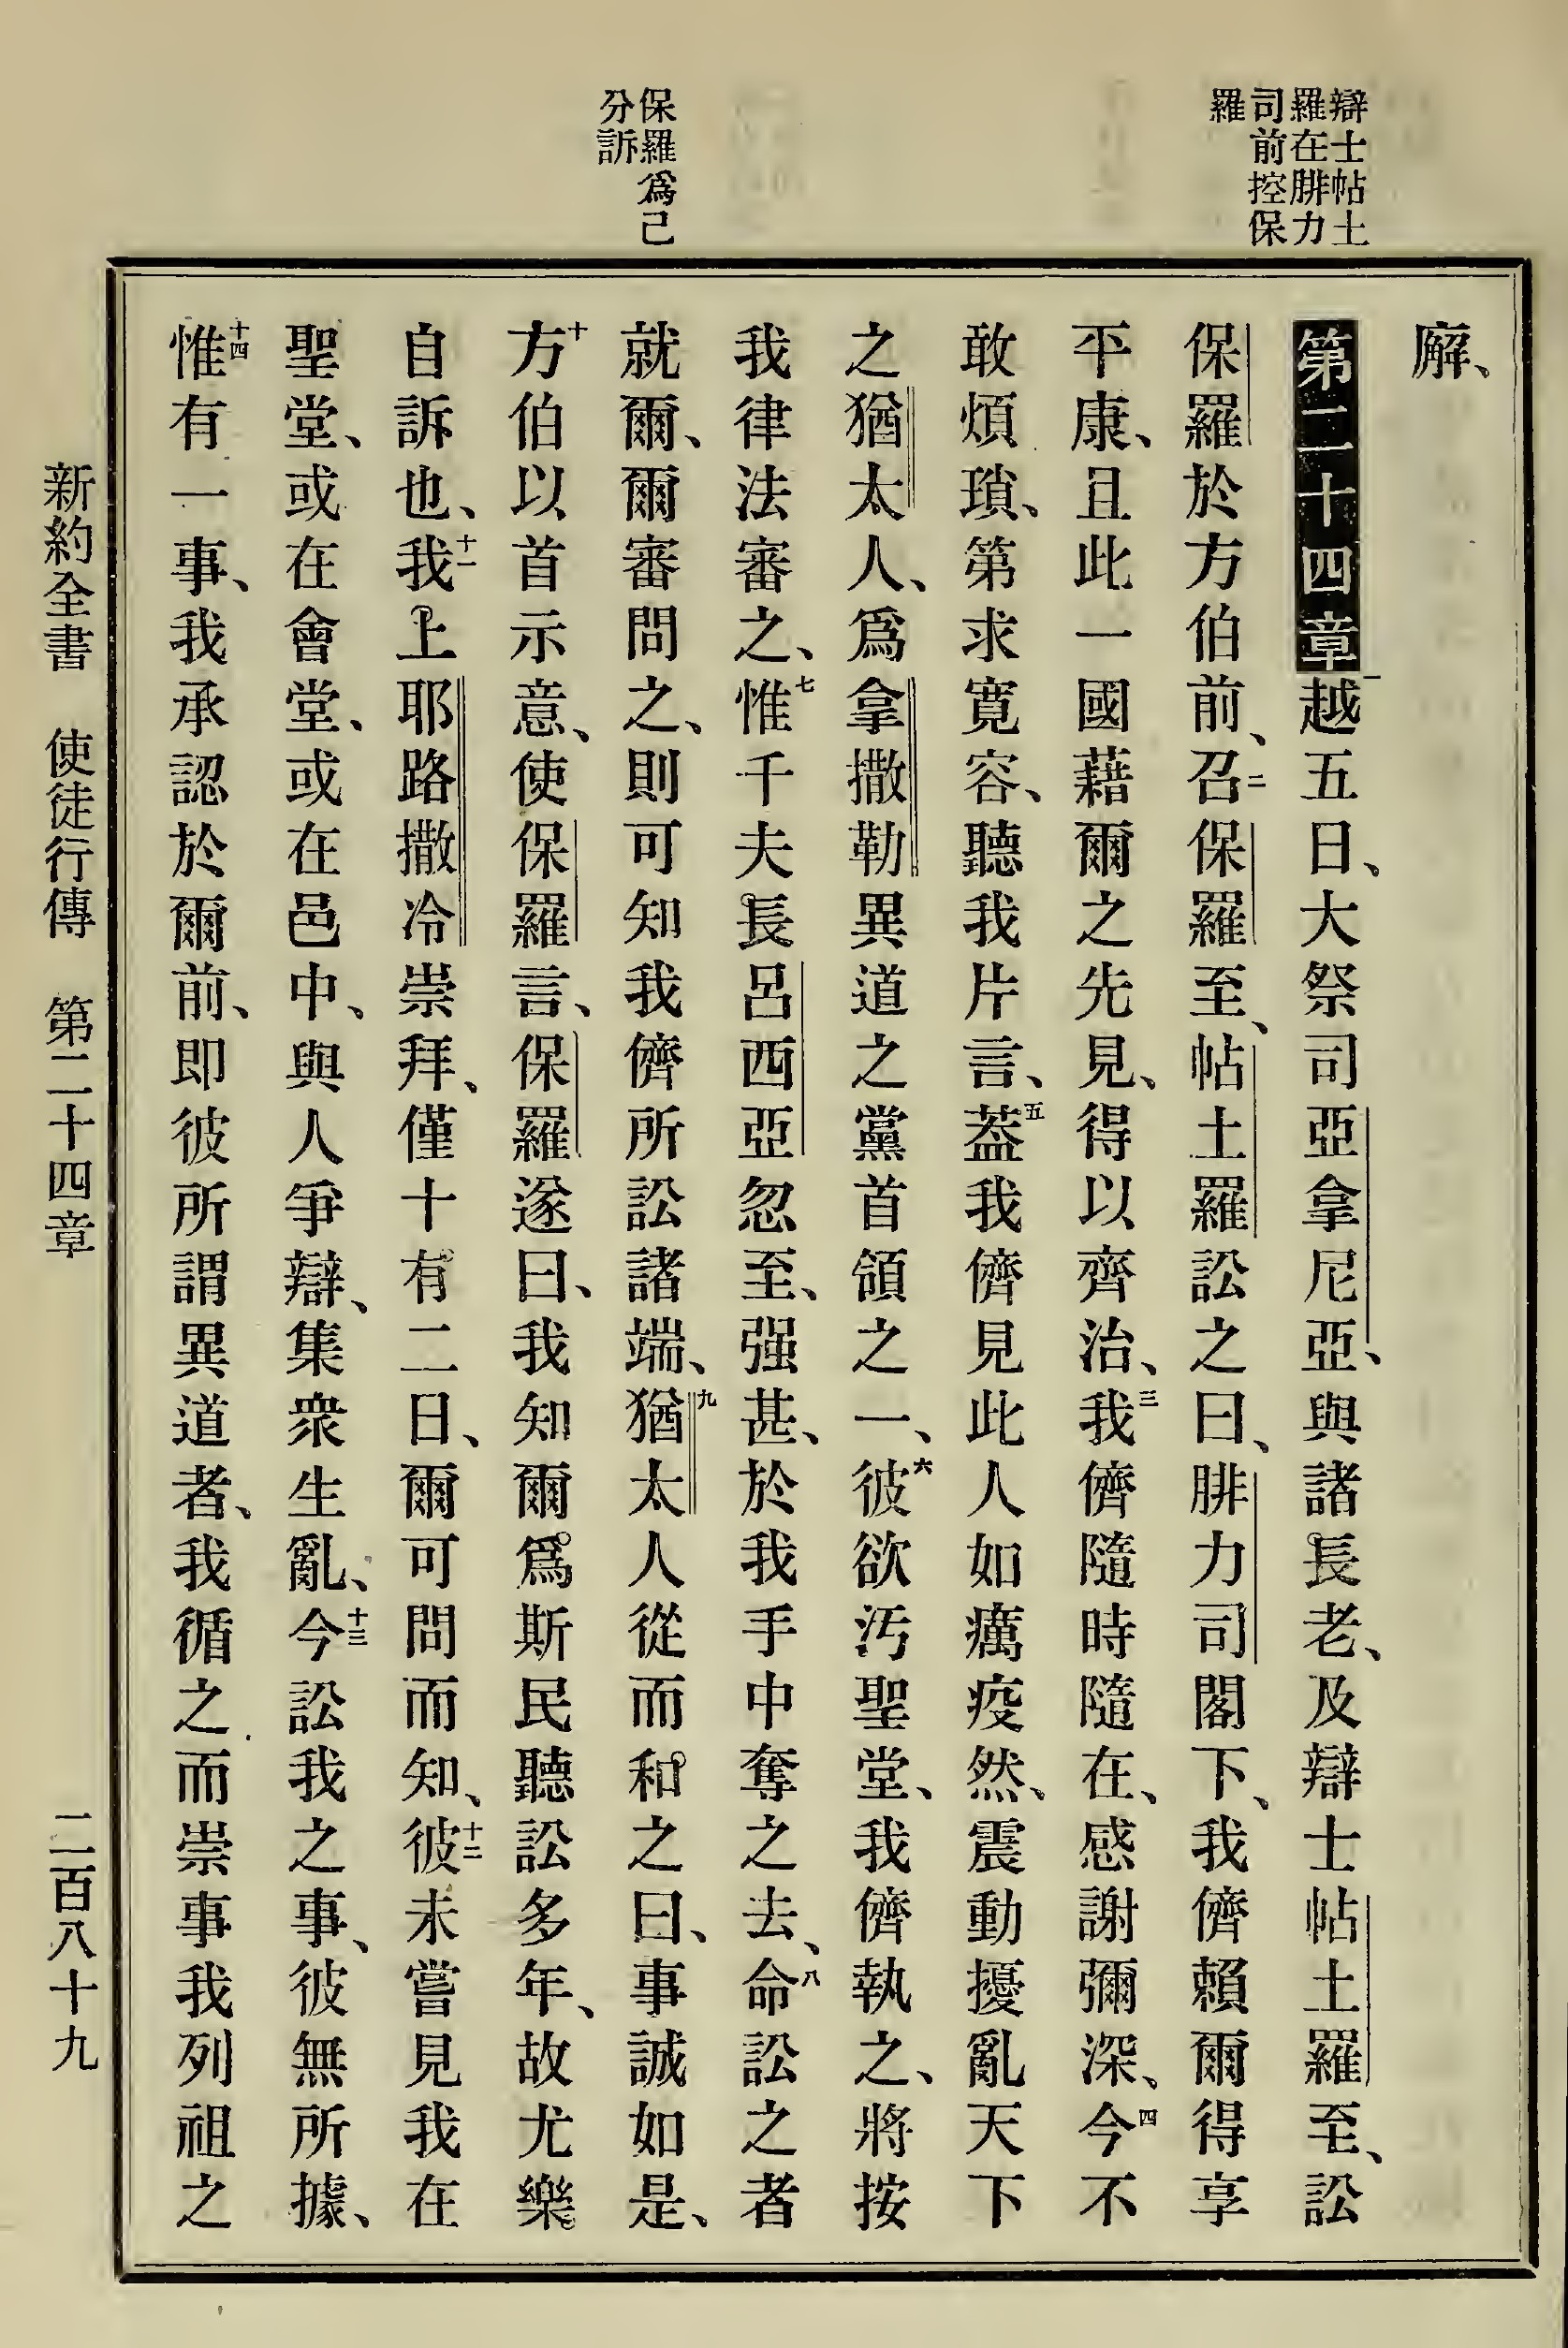 辯士帖土
羅在腓力
司前控保
羅
保羅爲己
分訴
廨、
第二十四章 一越五日、大祭司亞拿尼亞、與諸長老、及辯士帖土羅至、訟
保羅於方伯前、二召保羅至、帖土羅訟之曰、腓力司閣下、我儕賴爾得享
平康、且此一國藉爾之先見、得以齊治、三我儕隨時隨在、感謝彌深、四今不
敢煩瑣、第求寬容、聽我片言、五葢我儕見此人如癘疫然、震動擾亂天下
之猶太人、爲拿撒勒異道之黨首領之一、六彼欲汚聖堂、我儕執之、將按
我律法審之、七惟千夫長呂西亞忽至、强甚、於我手中奪之去、八命訟之者
就爾、爾審問之、則可知我儕所訟諸端、九猶太人從而和之曰、事誠如是、
十方伯以首示意、使保羅言、保羅遂曰、我知爾爲斯民聽訟多年、故尤樂
自訴也、十一我上耶路撒冷崇拜、僅十有二日、爾可問而知、十二彼未嘗見我在
聖堂、或在會堂、或在邑中、與人爭辯、集衆生亂、十三今訟我之事、彼無所據、
十四惟有一事、我承認於爾前、即彼所謂異道者、我循之而崇事我列祖之
新約全書 使徒行傳 第二十四章 二百八十九